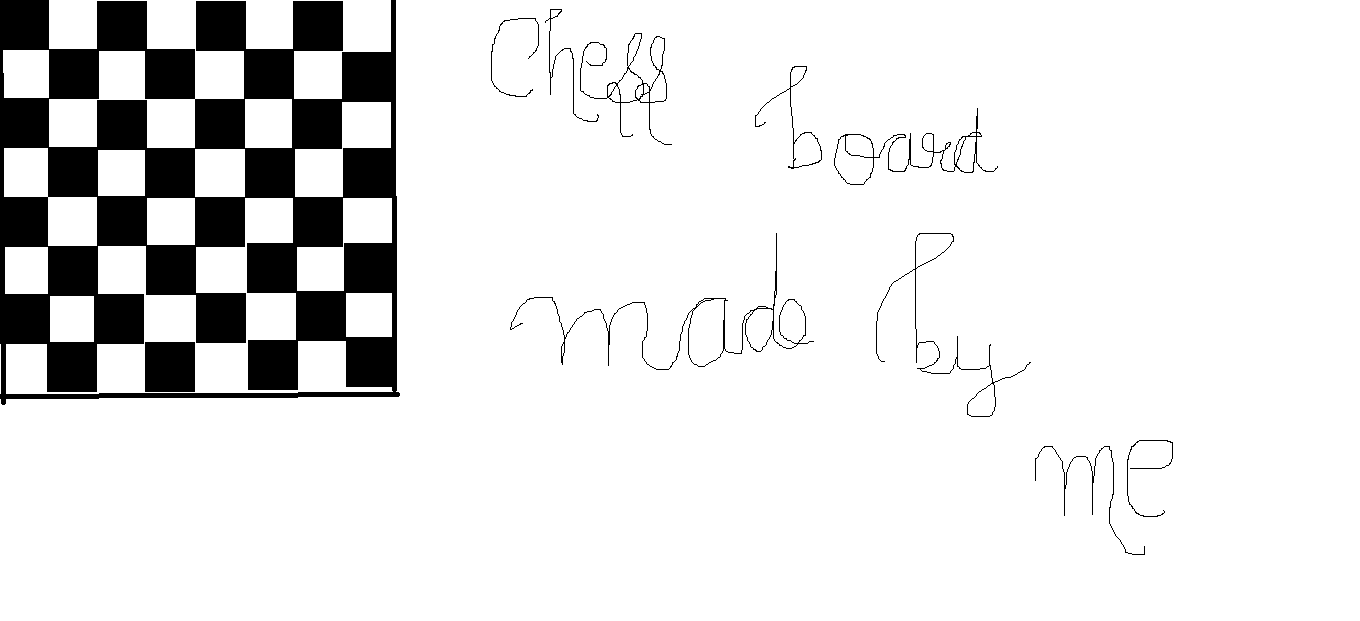 Chess board
made by
me